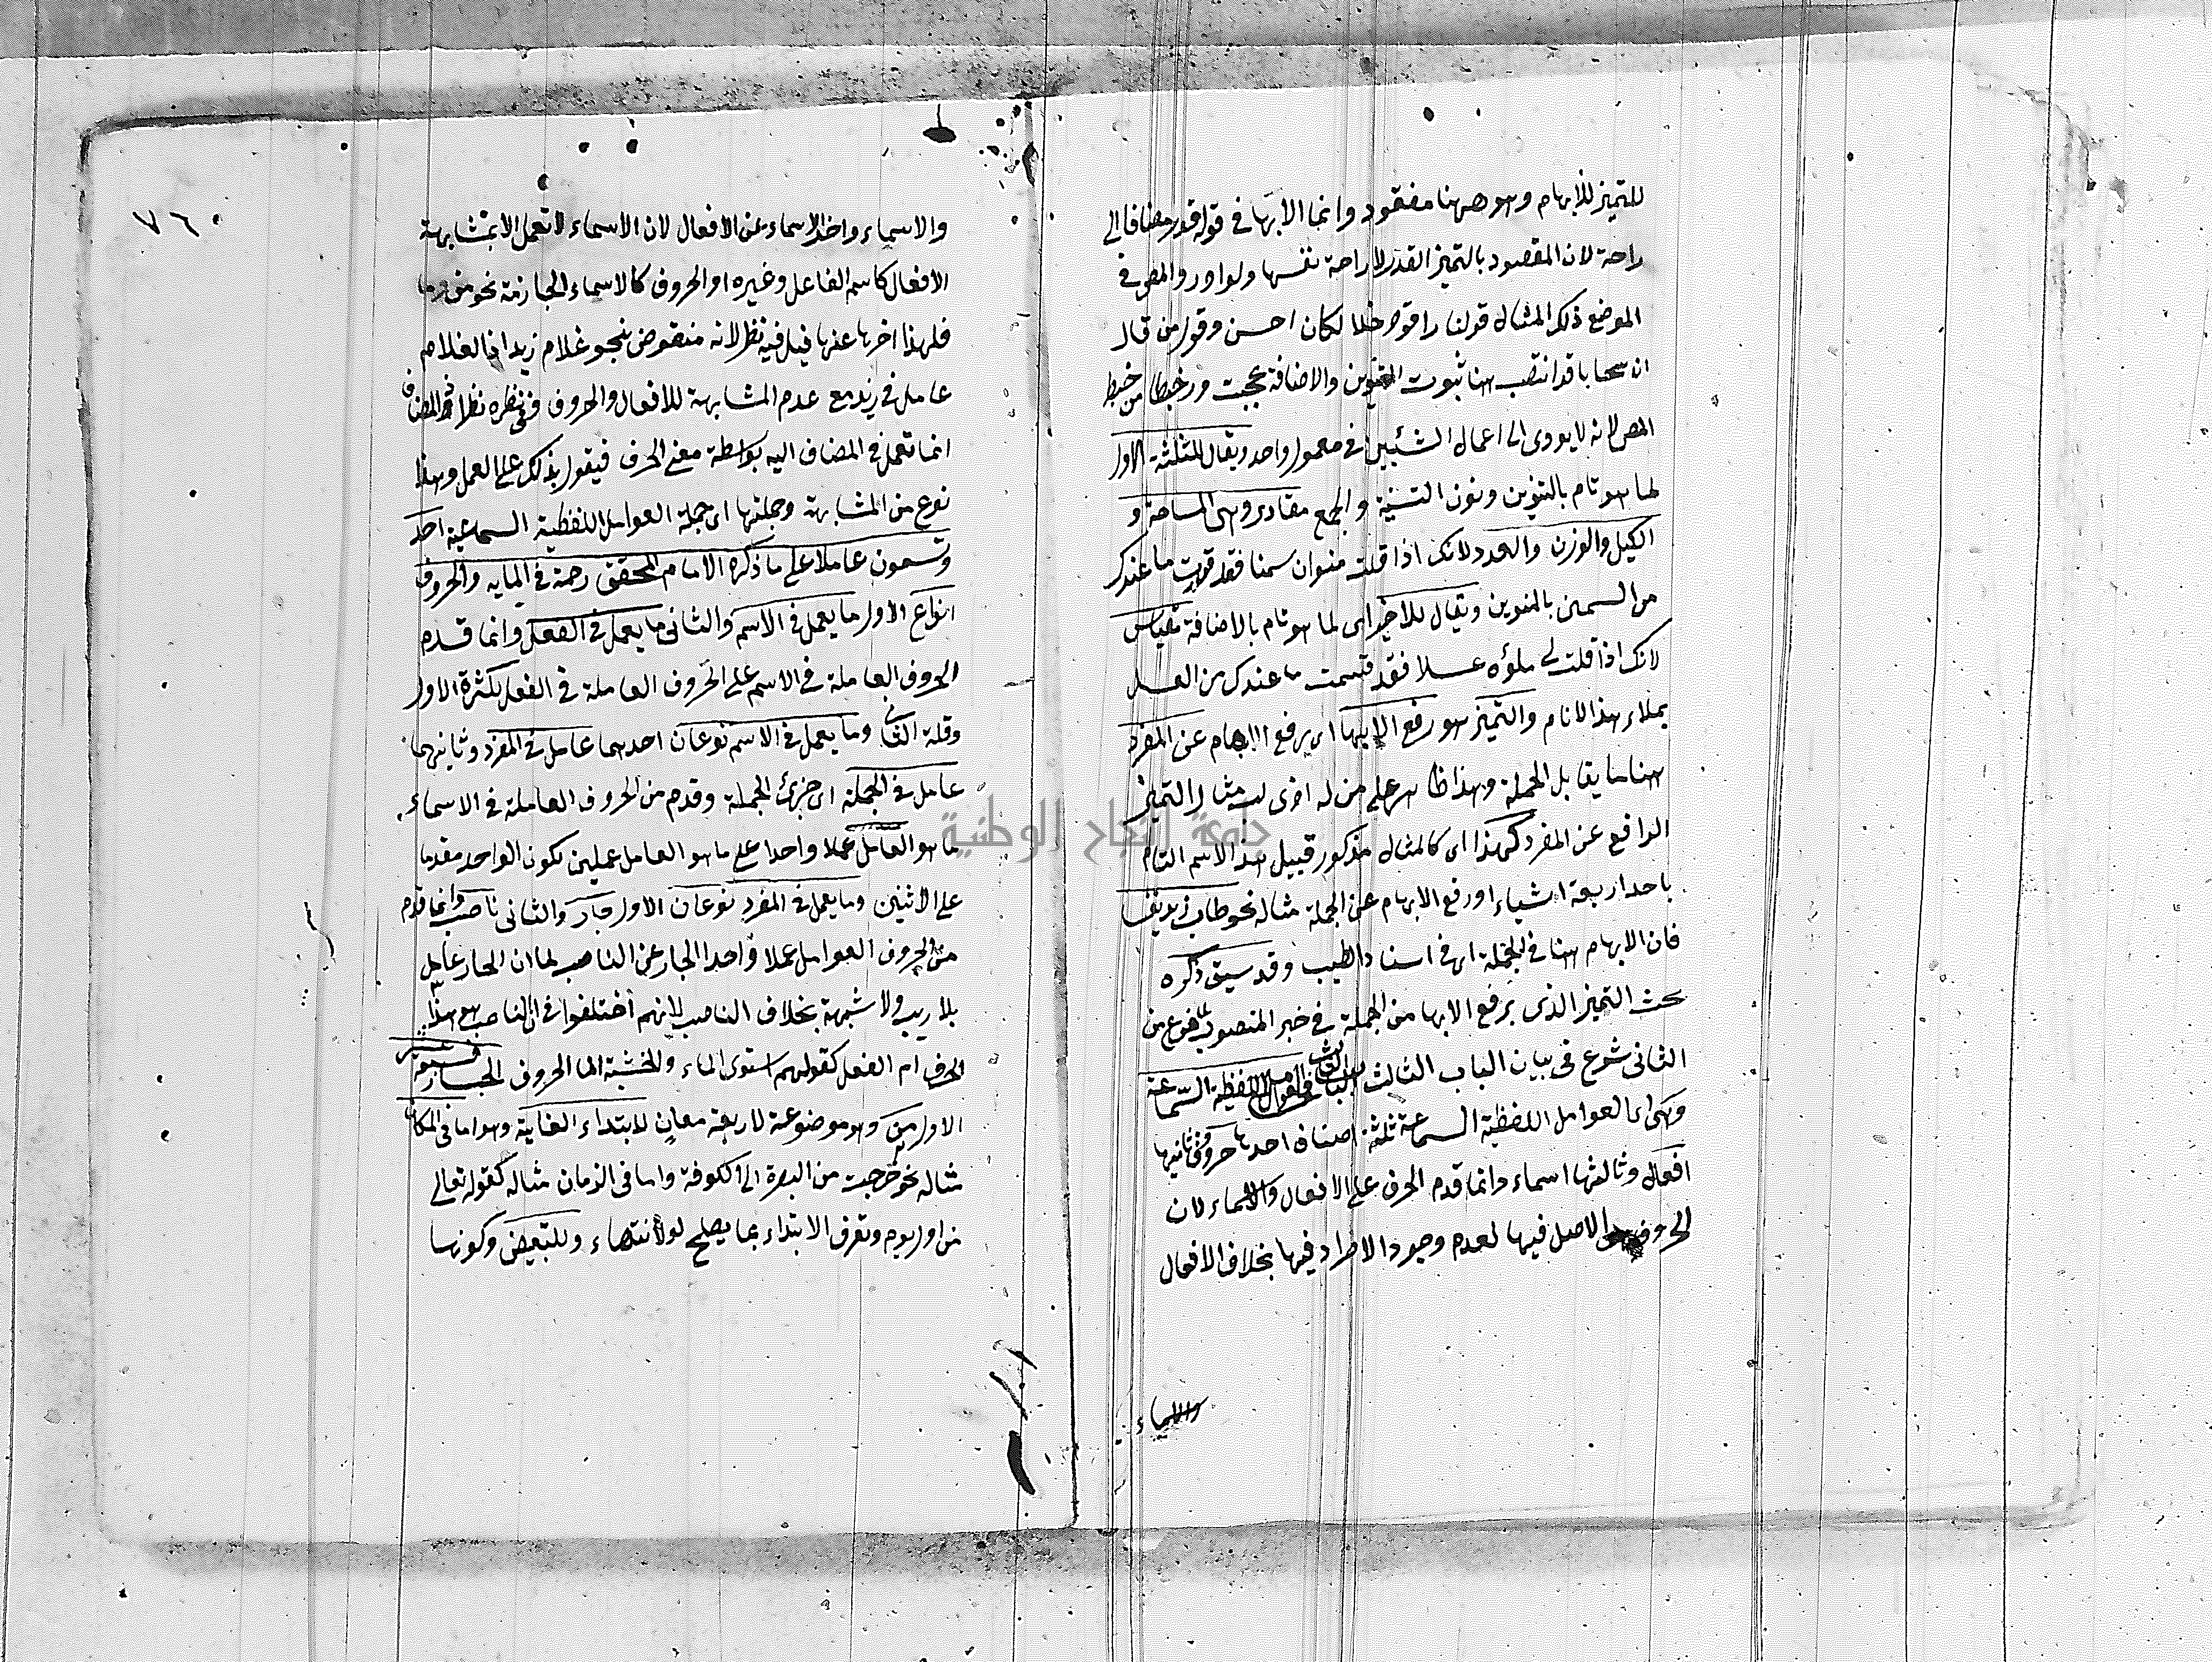 للتميز للابهام وهو ههنا مفقود وانما الابها في قوله قدر مضافا الى
راحة لان المقصود بالتميز القدر لا راحة نفسها ولو اورد المص في
الموضع ذكر المثال قولنا راقود خلا لكان احسن وقول من قال
ان سحابا قد انتصب هنا ثبوت التنوين والاضافة عجبت وخبط من خبط
المص لانه لا يودى الى اعمال الشئيين في معمول واحد ويقال للثلثة الاول
لما هو تام بالتنوين ونون التسنية والجمع مقادير وهى المساحة و
الكيل والوزن والعدد لانك اذا قلت منوان سمنا فقد قدرت ما عندك
من السمن بالمنوين ويقال للاخير اى لما هو تام بالاضافة مقياس
لانك اذا قلت لى ملؤه عسلا فقد قسمت ما عندك من العسل
بملاء هذا الانام والتميز هو رفع الابها اى يرفع الابهام عن المفرد
هنا ما يقابل الجملة وهذا ظاهر على من له ادنى لب مثال التميز
الرافع عن المفرد كهذا اى كالمثال مذكور قبيل هذا الاسم التام
باحد اربعة اشياء او رفع الابهام عن الجملة مثاله نحو طاب زيد نفسا
فان الابهام هنا في الجملة اى في اسناد الطيب وقد سبق ذكره
بحث التميز الذى يرفع الابها من الجملة في خبر المنصوب لما فرغ من
الثانى شرع فى بيان الباب الثالث الباب الثالث في العوامل اللفظية السماعية
وهى اى العوامل اللفظية السماعية ثلثة اصناف احدها حروف وثانيها
افعال وثالثها اسماء وانما قدم الحرف على الافعال والاسماء لان
الحروف الاصل فيها لعدم وجود الافراد فيها بخلاف الافعال
والاسماء
٧٦
والاسماء واخر الاسماء عن الافعال لان الاسماء لا تعمل الا بمشابهة
الافعال كاسم الفاعل وغيره او الحروف كالاسماء الجازمة نحو من وما
فلهذا اخرها عنها فيل فيه نظر لانه منقوض بنحو غلام زيد انما لغلام
عامل في زيد مع عدم المشابهة للافعال والحروف وفى نظره نظر لان المضاف
انما تعمل في المضاف اليه بواسطة معنى الحرف فيقول بذلك على العمل وهذا
نوع من المشابهة وجملتها اى جملة العوامل اللفظية السماعية احد
وتسعون عاملا على ما ذكره الامام المحقق رحمة في المايه والحروف
انواع الاول ما يعمل في الاسم والثانى ما يعمل في الفعل وانما قدم
الحروف العاملة في الاسم على الحروف العاملة في الفعل لكثرة الاول
وقلة الثانى وما يعمل في الاسم نوعان احدهما عامل في المفرد وثانيهما
عامل في الجملة اى جزئى الجملة وقدم من الحروف العاملة في الاسماء
ما هو العامل عملا واحدا على ما هو العامل عملين لكون الواحد مقدما
على الاثنين وما يعمل في المفرد نوعان الاول جار والثانى ناصب وانما قدم
من الحروف العوامل عملا واحدا الجار عن الناصب لما ان الجار عامل
بلا ريب ولا شبهة بخلاف الناصب لانهم اختلفوا في ان الناصب هو هذا
الحرف ام الفعل كقولهم استوى الماء والخشبة اما الحروف الجار فسبعة عشر
الاول من وهو موضوعة لاربعة معان لابتداء الغاية وهو اما فى المكان
مثاله نحو خرجت من البصرة الى الكوفة واما فى الزمان مثاله كقوله تعالى
من اول يوم وتعرف الابتداء بما يصلح له الانتهاء وللتبعيض وكونها
جامعة النجاح الوطنية